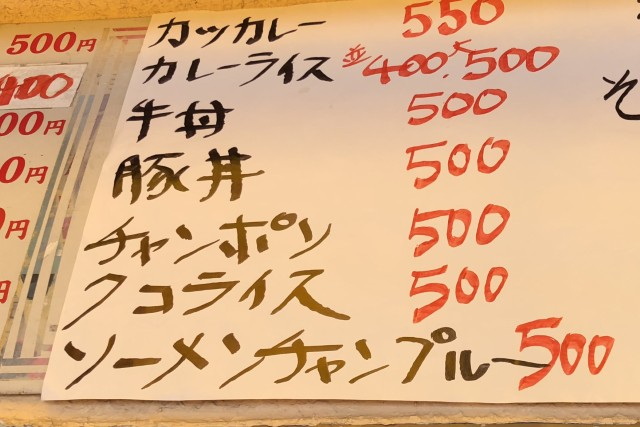 カツカレー 550
カレーライス 並400 大500
牛丼 500
豚丼 500
チャンポン 500
タコライス 500
ソーメンチャンプルー 500
500円
400
00円
0円
0円
円
そ